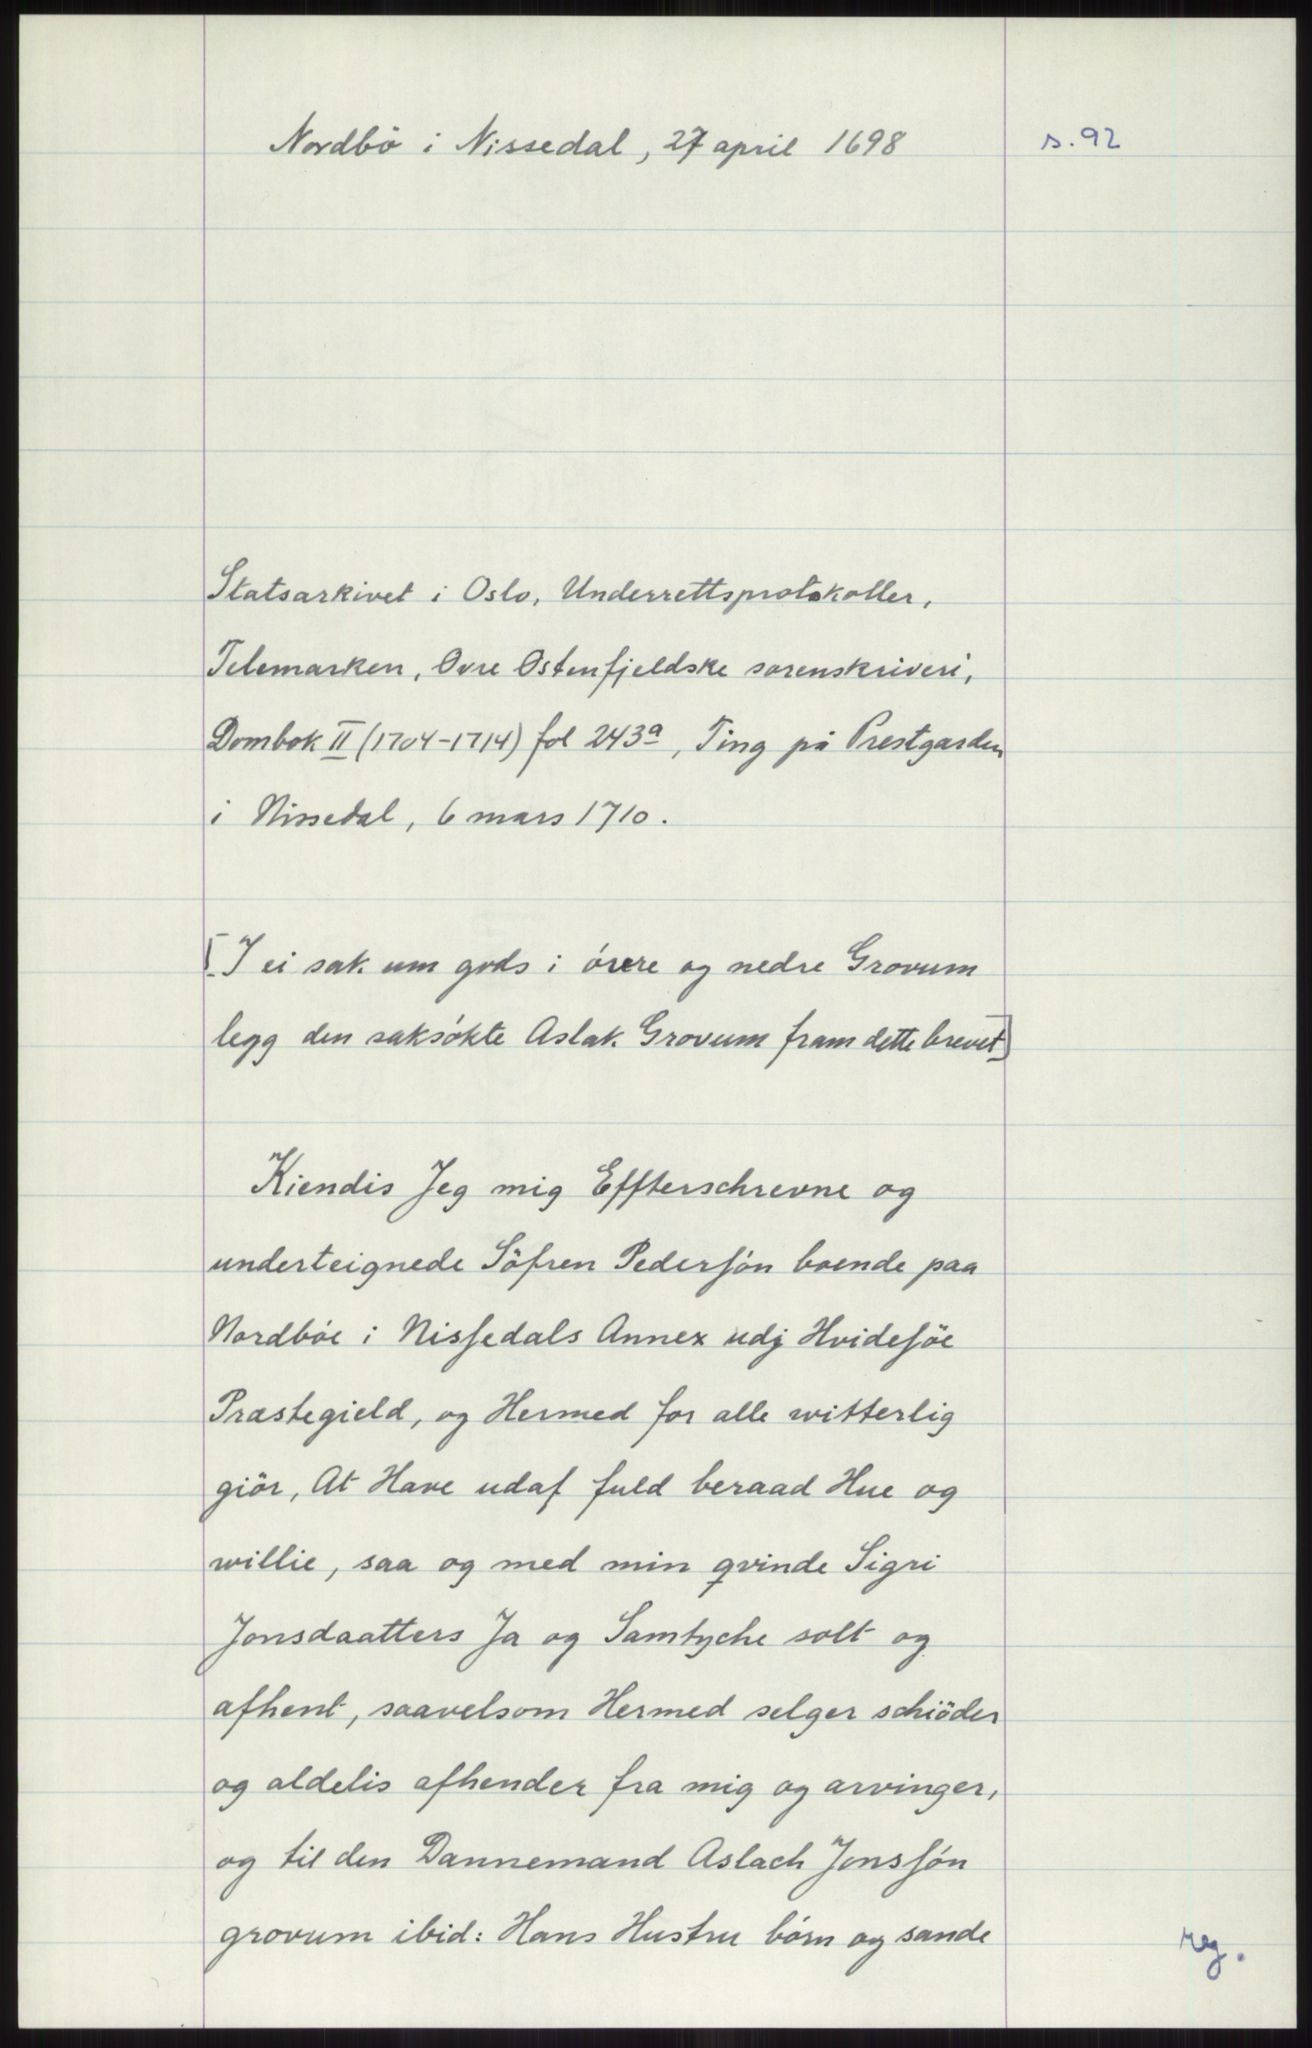 Nordbö i Nissedal, 27 april 1698
s. 92
Statsarkivet i Oslo, Underrettsprotokoller,
Telemarken, Øvre Østenfjeldske sorenskriveri,
Dombok II (1704-1714) fol 243a, Ting på Prestgarden
i Nissedal, 6 mars 1710.
[I ei sak um gods i óvre og nedre Grovum
legg den saksókte Aslak Grovum fram dette brevet]
Kiendis Jeg mig Effterschrevne og
underteignede Söfren Pedersón boende paa
Nordbóe i Nissedals Annex udj Hvidesöe
Præstegield, og Hermed for alle witterlig
giör, At Have udaf fuld beraad Hue og
willie, saa og med min qvinde Sigri
Jonsdaatters Ja og Samtyche solt og
afhent, saavelsom Hermed selger schiöder
og aldelis afhender fra mig og arvinger,
og til den Dannemand Aslach Jonssón
grovum ibid: Hans Hustru bórn og sande
reg.